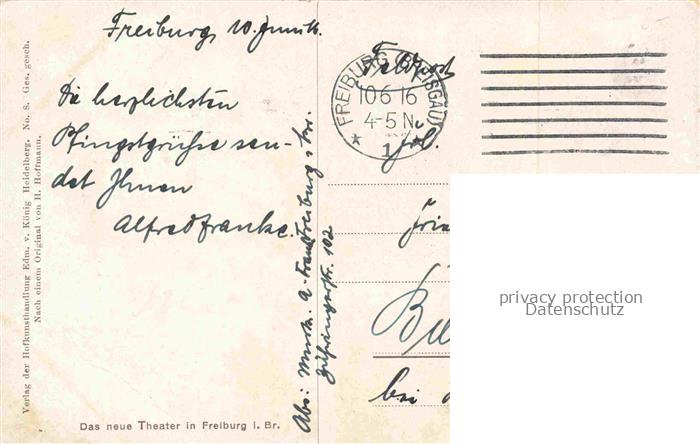 Freiburg, 10. Juni 16.
Die herzlichsten
Pfingstgrüße sen-
det Ihnen
Alfred Franke.
Das neue Theater in Freiburg i. Br.
Verlag der Hofkunsthandlung Edm. v. König Heidelberg. No. 8. Ges. gesch.
Nach einem Original von H. Hoffmann.
Abs: A. Franke Freiburg i. Br.
Zähringerstr. 102
Feldpost
FREIBURG (BREISGAU)
10 6 16
4-5 N.
* 1 *
Bu
bei
privacy protection
Datenschutz